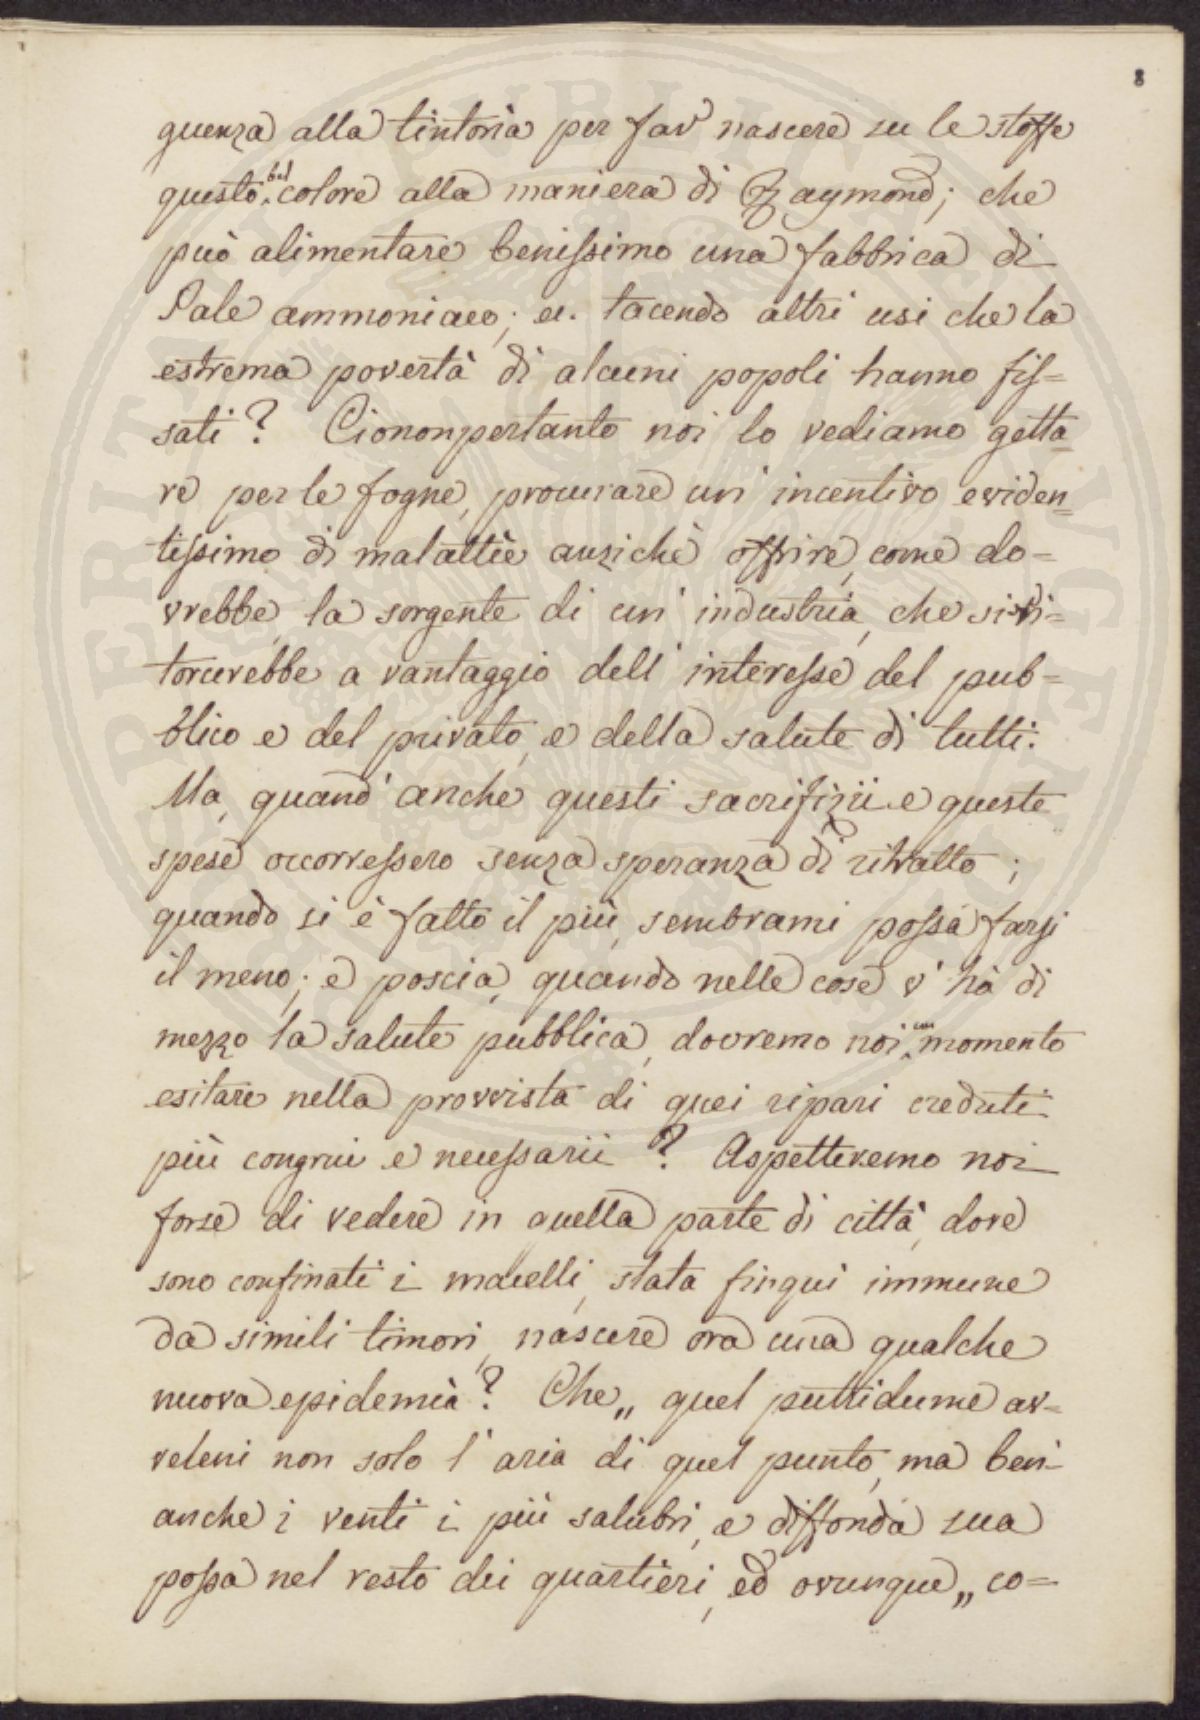 8
guenza alla tintoria per far nascere su le stoffe
questo bel colore alla maniera di Raymond; che
può alimentare benissimo una fabbrica di
Sale ammoniaco; ec. tacendo altri usi che la
estrema povertà di alcuni popoli hanno fis=
sati? Ciononpertanto noi lo vediamo getta=
re per le fogne, procurare un' incentivo eviden=
tissimo di malattie anzichè offrire, come do=
vrebbe, la sorgente di un' industria, che si ri=
torcerebbe a vantaggio dell' interesse del pub=
blico e del privato, e della salute di tutti.
Ma, quand' anche questi sacrifizii e queste
spese occorressero senza speranza di ritratto;
quando si è fatto il più, sembrami possa farsi
il meno; e poscia, quando nelle cose v' ha di
mezzo la salute pubblica, dovremo noi un momento
esitare nella provvista di quei ripari creduti
più congrui e necessarii? Aspetteremo noi
forse di vedere in quella parte di città, dove
sono confinati i macelli, stata finqui immune
da simili timori, nascere ora una qualche
nuova epidemia? Che „ quel putridume av=
veleni non solo l' aria di quel punto, ma ben
anche i venti i più salubri, e diffonda sua
possa nel resto dei quartieri, ed ovunque „ co=
PUBLICAE
PERITA